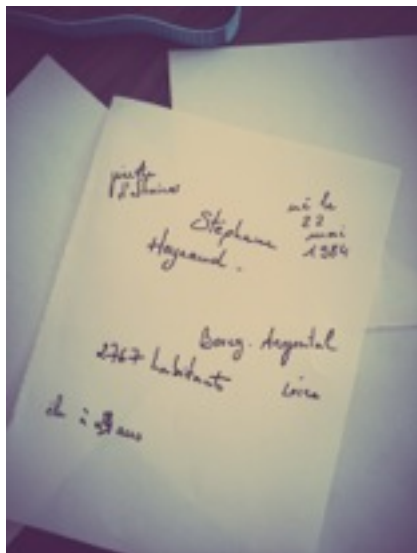 Stéphane
Heyraud.
né le
22
mai
1984
Bourg-Argental
2767 habitants
Loire
élu à ans